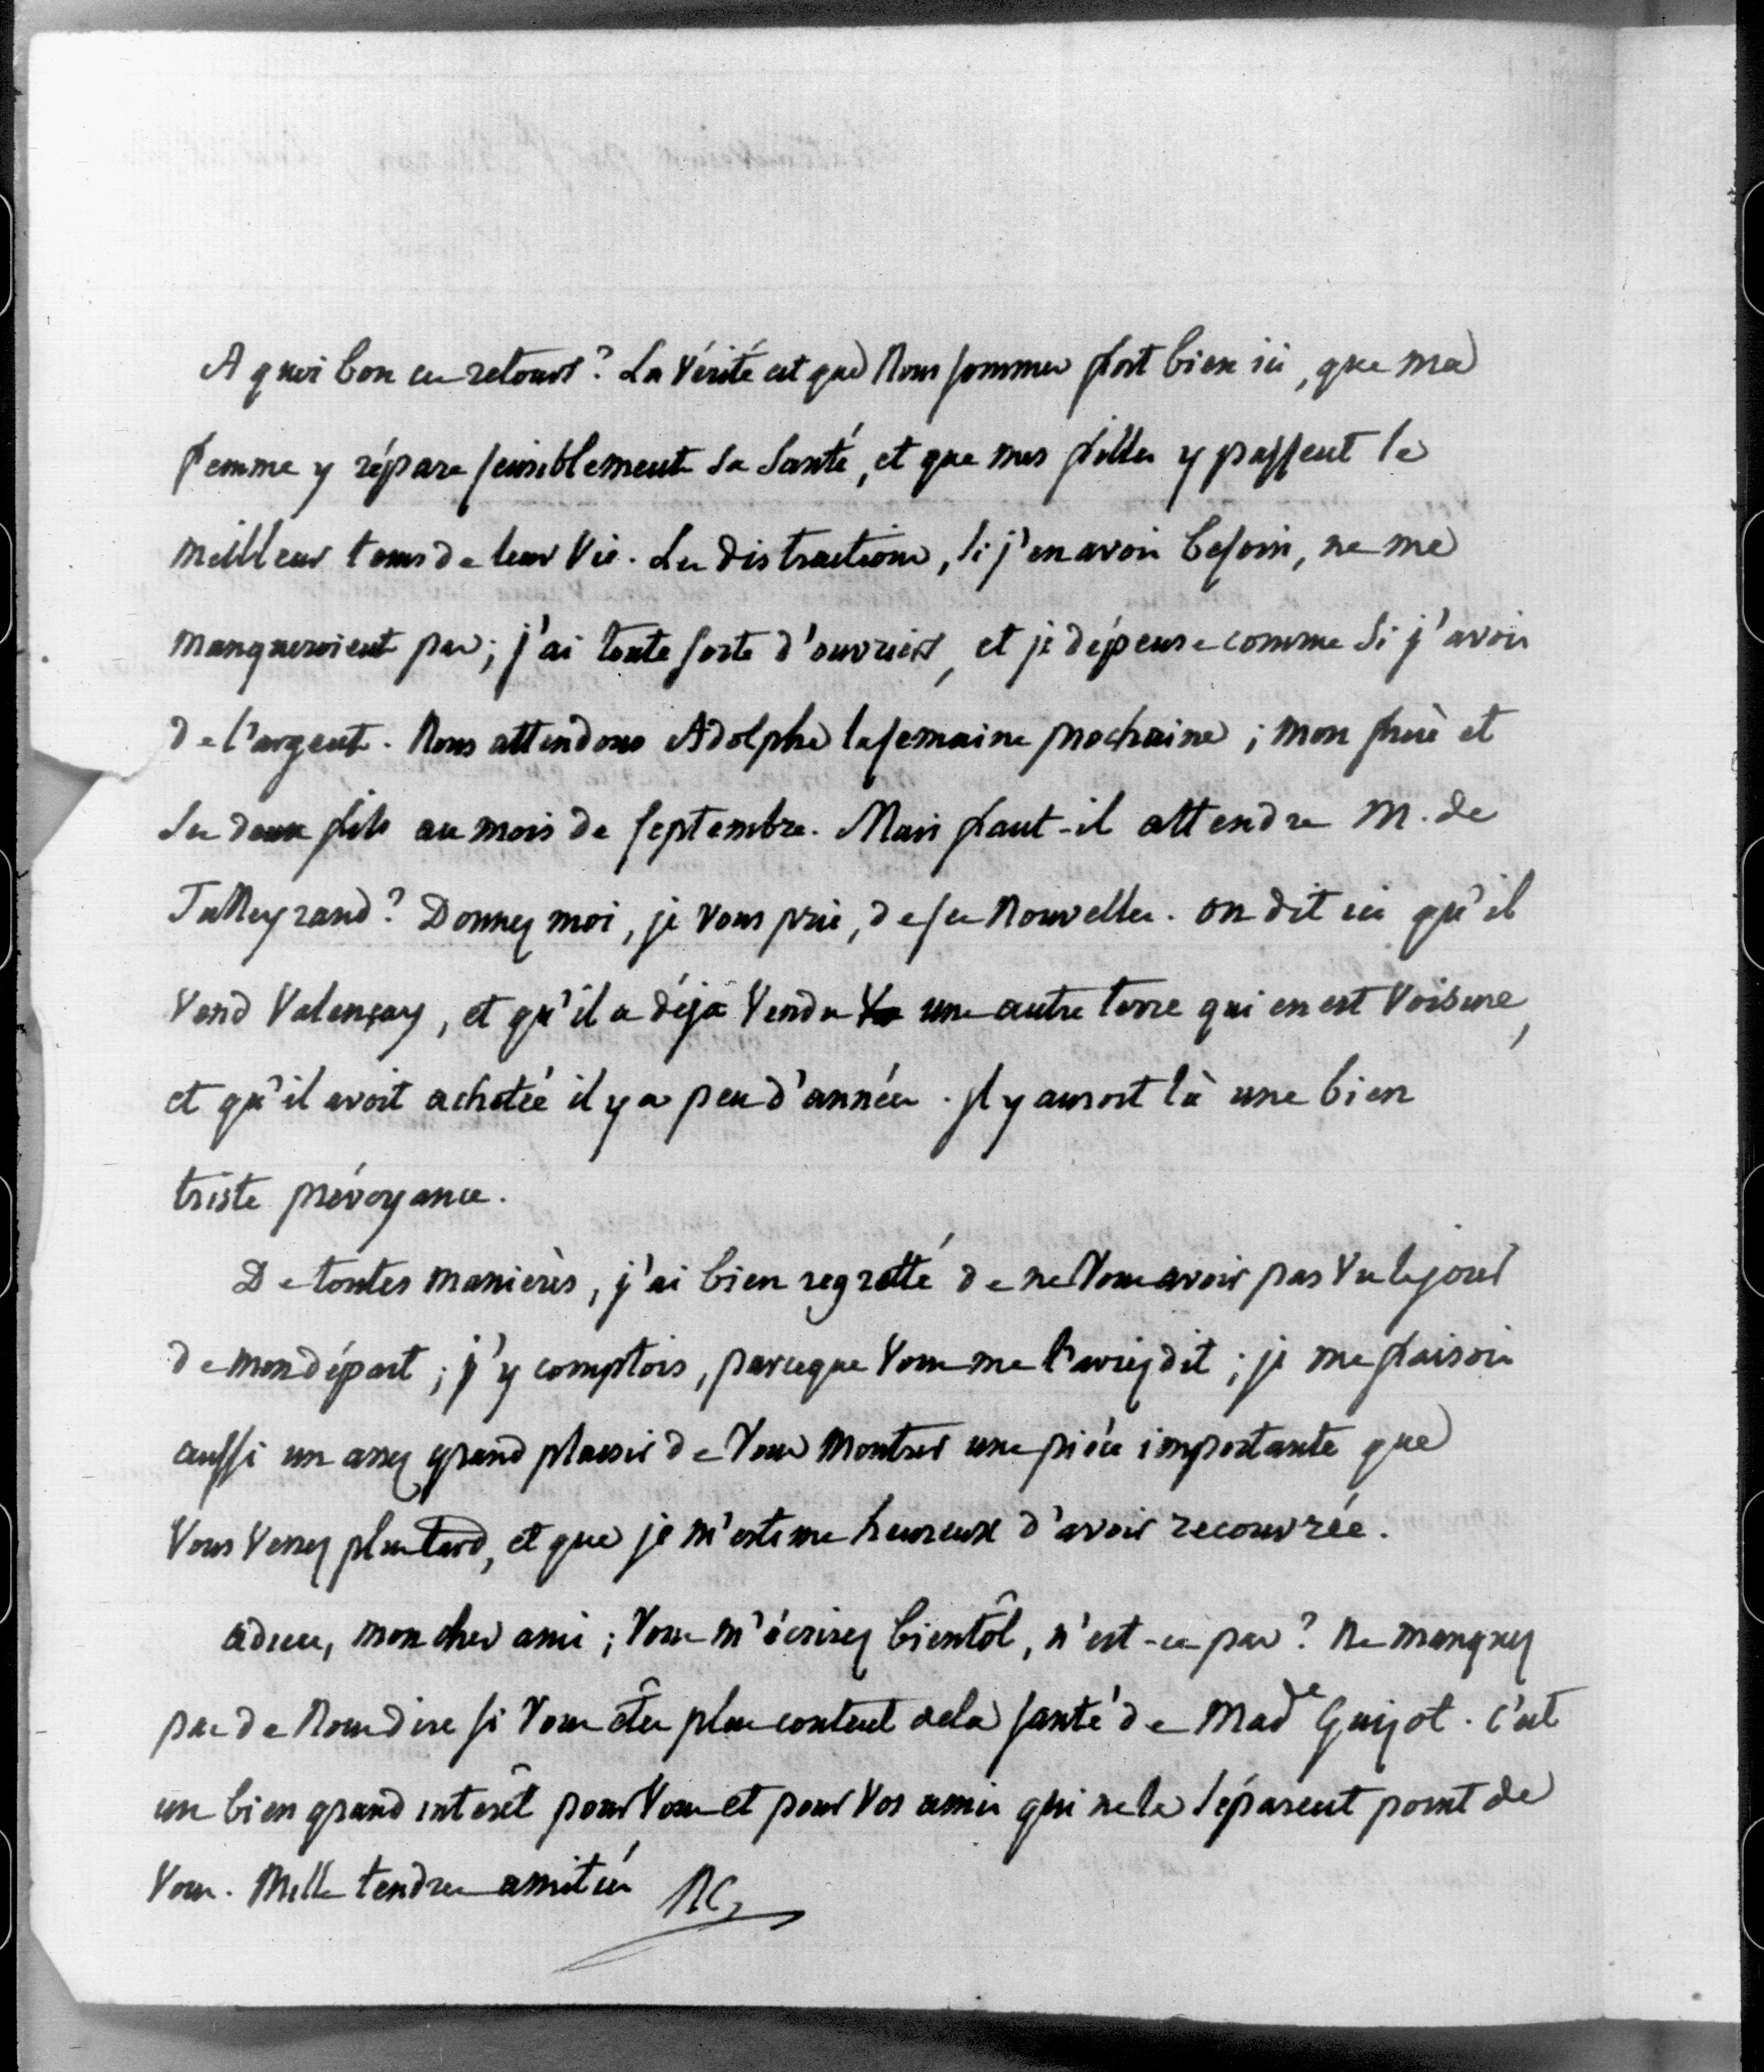 A quoi bon ces retours ? La vérité est que nous sommes fort bien ici, que ma
femme y répare sensiblement sa santé, et que mes filles y passent le
meilleur tems de leur vie. Les distractions, si j'en avois besoin, ne me
manqueroient pas ; j'ai toute sorte d'ouvriers, et je dépense comme si j'avois
de l'argent. Nous attendons Adolphe la semaine prochaine ; mon frère et
ses deux fils au mois de septembre. Mais faut-il attendre M. de
Talleyrand ? Donnez moi, je vous prie, de ses nouvelles. On dit ici qu'il
vend Valençay, et qu'il a déjà vendu une autre terre qui en est voisine,
et qu'il avoit achetée il y a peu d'années. Il y auroit là une bien
triste prévoyance.
De toutes manières, j'ai bien regretté de ne vous avoir pas vu le jour
de mon départ ; j'y comptois, parceque vous me l'aviez dit ; je me faisois
aussi un assez grand plaisir de vous montrer une pièce importante que
vous verrez plus tard, et que je m'estime heureux d'avoir recouvrée.
adieu, mon cher ami ; vous m'écrirez bientôt, n'est-ce pas ? Ne manquez
pas de nous dire si vous êtes plus content de la santé de Made Guizot. C'est
un bien grand interêt pour vous et pour vos amis qui ne la séparent point de
vous. Mille tendres amitiés RC